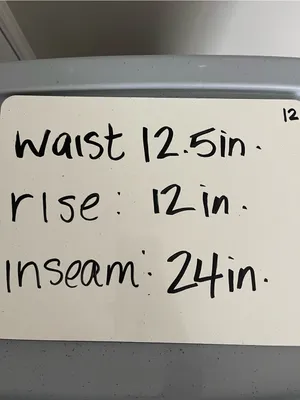 12
Waist 12.5in.
rise: 12in.
inseam: 24in.